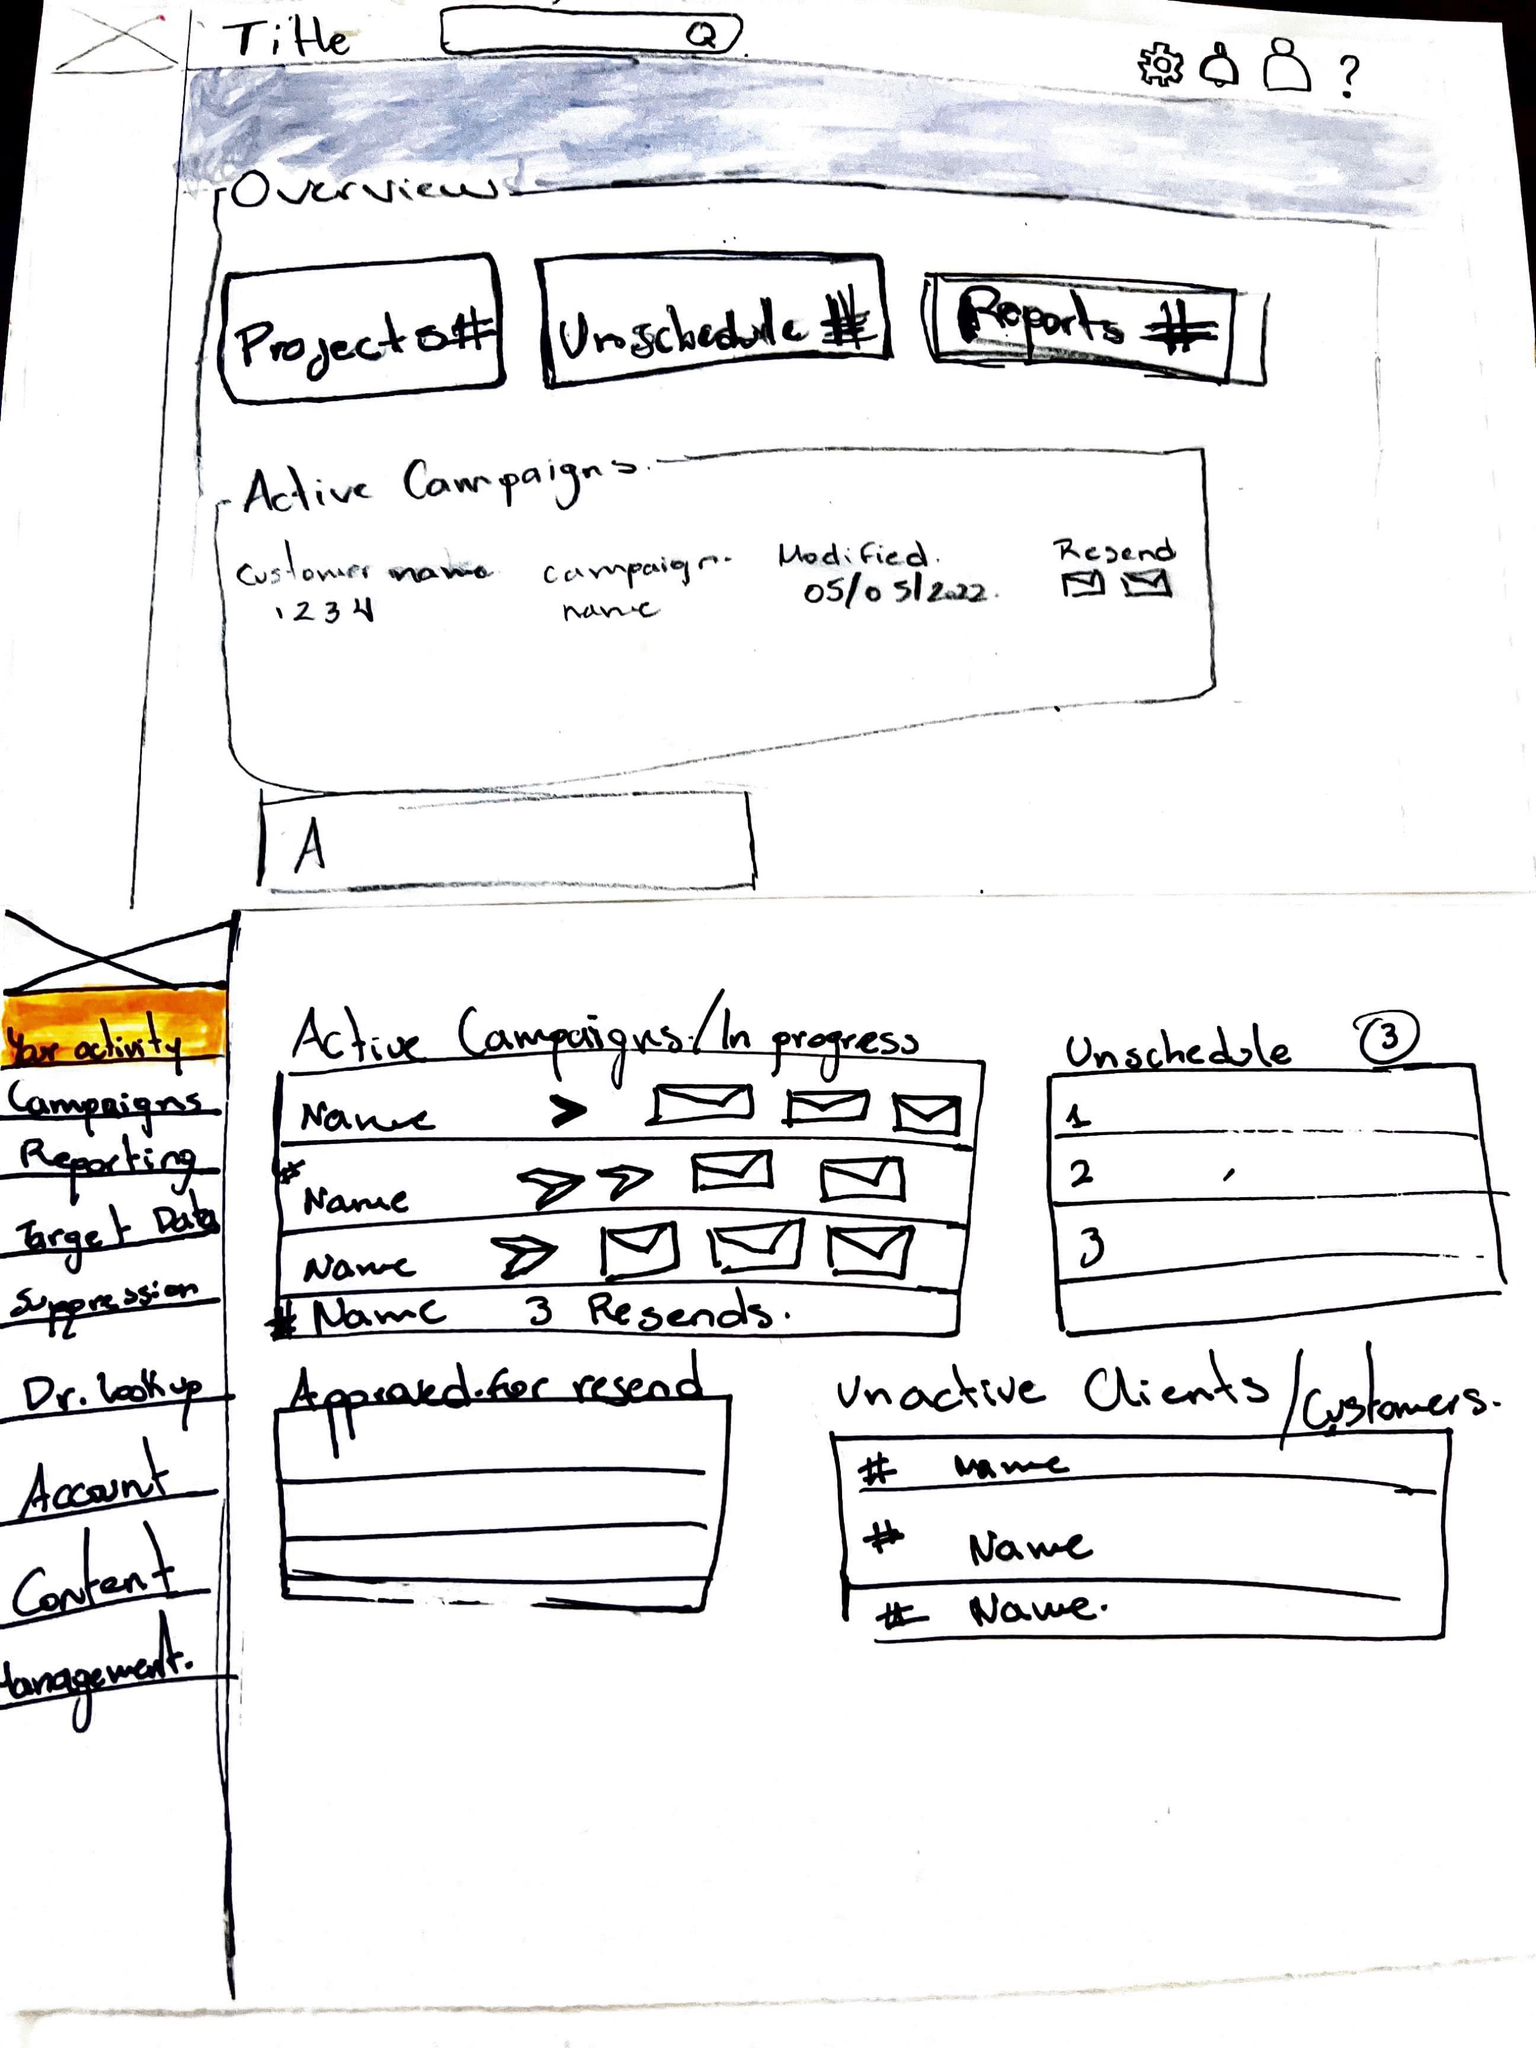 Title
Overview
Projects #
Unschedule #
Reports #
Active Campaigns.
Customer name campaign Modified. Resend
1234 name 05/05/2022.
A
Your activity
Campaigns
Reporting
Target Data
Suppression
Dr. lookup
Account
Content
Management.
Active Campaigns/In progress
Name >
# Name
Name
# Name 3 Resends.
Unschedule 3
1
2
3
Approved for resend
Unactive Clients/Customers.
# name
# Name
# Name.